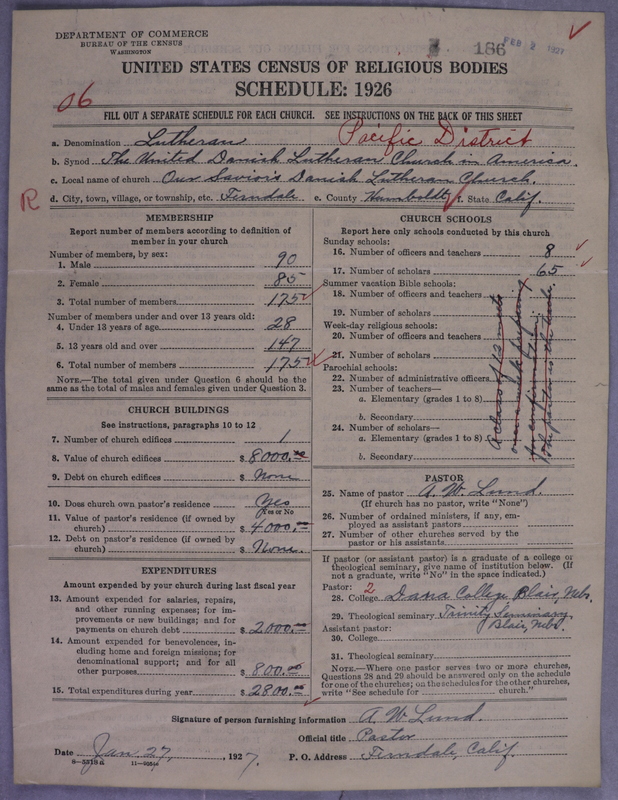 DEPARTMENT OF COMMERCE
BUREAU OF THE CENSUS
WASHINGTON
186 FEB 2 1927
UNITED STATES CENSUS OF RELIGIOUS BODIES
SCHEDULE: 1926
06
FILL OUT A SEPARATE SCHEDULE FOR EACH CHURCH. SEE INSTRUCTIONS ON THE BACK OF THIS SHEET
Pacific District
a. Denomination Lutheran
b. Synod The United Danish Lutheran Church in America.
c. Local name of church Our Saviors Danish Lutheran Church.
R
d. City, town, village, or township, etc. Ferndale e. County Humboldt f. State Calif.
MEMBERSHIP
Report number of members according to definition of
member in your church
Number of members, by sex:
1. Male 90
2. Female 85
3. Total number of members 175
Number of members under and over 13 years old:
4. Under 13 years of age 28
5. 13 years old and over 147
6. Total number of members 175
NOTE.—The total given under Question 6 should be
same as the total of males and females given under Question 3.
CHURCH BUILDINGS
See instructions, paragraphs 10 to 12
7. Number of church edifices 1
8. Value of church edifices $ 8000.00
9. Debt on church edifices $ None
10. Does church own pastor's residence Yes
(Yes or No
11. Value of pastor's residence (if owned by
church) $ 4000.00
12. Debt on pastor's residence (if owned by
church) $ None.
EXPENDITURES
Amount expended by your church during last fiscal year
13. Amount expended for salaries, repairs,
and other running expenses; for im-
provements or new buildings; and for
payments on church debt $ 2000.00
14. Amount expended for benevolences, in-
cluding home and foreign missions; for
denominational support; and for all
other purposes $ 800.00
15. Total expenditures during year $ 2800.00
CHURCH SCHOOLS
Report here only schools conducted by this church
Sunday schools:
16. Number of officers and teachers 8
17. Number of scholars 65
Summer vacation Bible schools:
18. Number of officers and teachers
19. Number of scholars
Week-day religious schools:
20. Number of officers and teachers
21. Number of scholars
Parochial schools:
22. Number of administrative officers
23. Number of teachers—
a. Elementary (grades 1 to 8)
b. Secondary
24. Number of scholars—
a. Elementary (grades 1 to 8)
b. Secondary
A class of 12 meets
once a week preparing
for confirmation.
The pastor is the teacher.
PASTOR
25. Name of pastor A. W. Lund.
(If church has no pastor, write "None")
26. Number of ordained ministers, if any, em-
ployed as assistant pastors
27. Number of other churches served by the
pastor or his assistants
If pastor (or assistant pastor) is a graduate of a college or
theological seminary, give name of institution below. (If
not a graduate, write "No" in the space indicated.)
Pastor: 2
28. College Dana College Blair, Nebr.
29. Theological seminary Trinity Seminary
Blair, Nebr.
Assistant pastor:
30. College
31. Theological seminary
NOTE.—Where one pastor serves two or more churches,
Questions 28 and 29 should be answered only on the schedule
for one of the churches; on the schedules for the other churches,
write "See schedule for church."
Signature of person furnishing information A. W. Lund.
Official title Pastor
Date Jan. 27, 1927. P. O. Address Ferndale, Calif.